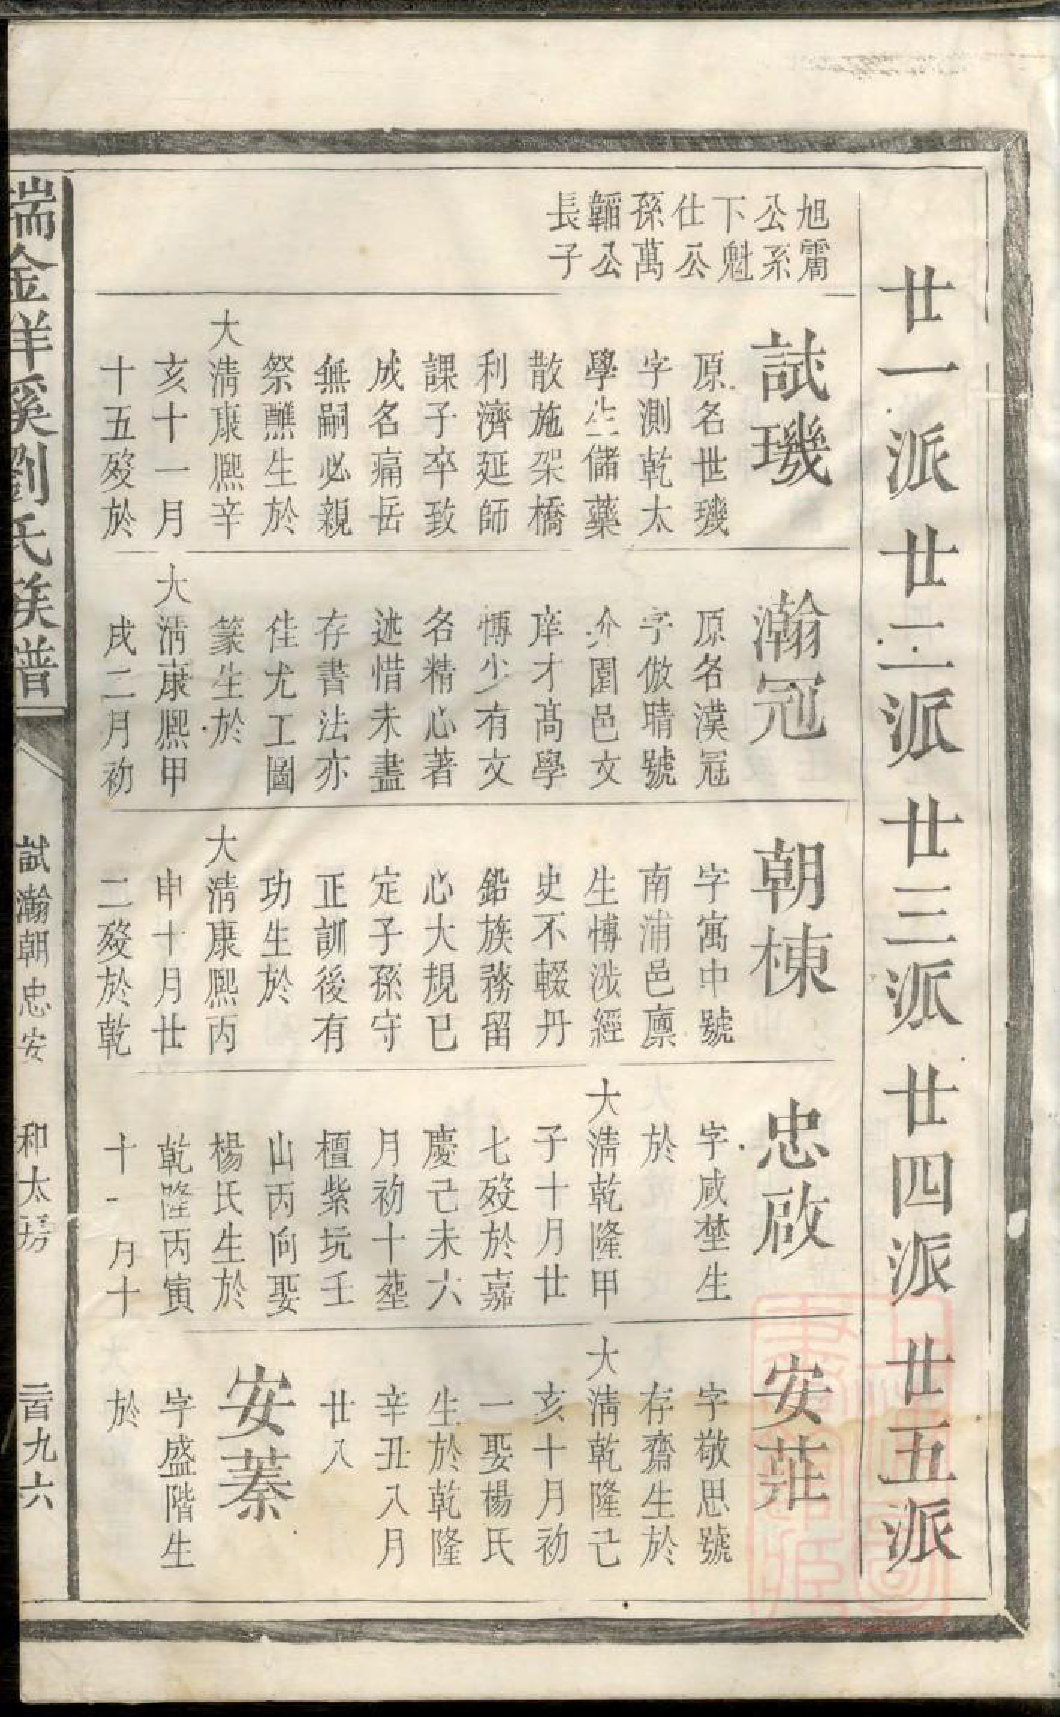 廿一派
廿二派
廿三派
廿四派
廿五派
旭霱
公系
下魁
仕公
孫萬
韜公
長子
試璣
原名世璣
字測乾太
學生儲藥
散施架橋
利濟延師
課子卒致
成名痛岳
無嗣必親
祭醮生於
大淸康熙辛
亥十一月
十五歿於
瀚冠
原名漢冠
字倣晴號
介園邑文
庠才高學
慱少有文
名精心著
述惜未盡
存書法亦
佳尤工圖
篆生於
大淸康熙甲
戌二月初
朝棟
字寓中號
南浦邑廪
生慱涉經
史不輟丹
鉛族務留
心大規已
定子孫守
正訓後有
功生於
大淸康熙丙
申十月廿
二歿於乾
忠啟
字咸埜生
於
大淸乾隆甲
子十月廿
七歿於嘉
慶己未六
月初十塟
檀紫坑壬
山丙向娶
楊氏生於
乾隆丙寅
十一月十
安莊
字敬思號
存齋生於
大淸乾隆己
亥十月初
一娶楊氏
生於乾隆
辛丑八月
廿八
安蓁
字盛階生
於
瑞金洋溪劉氏族譜
試瀚朝忠安
和太房
二百九六